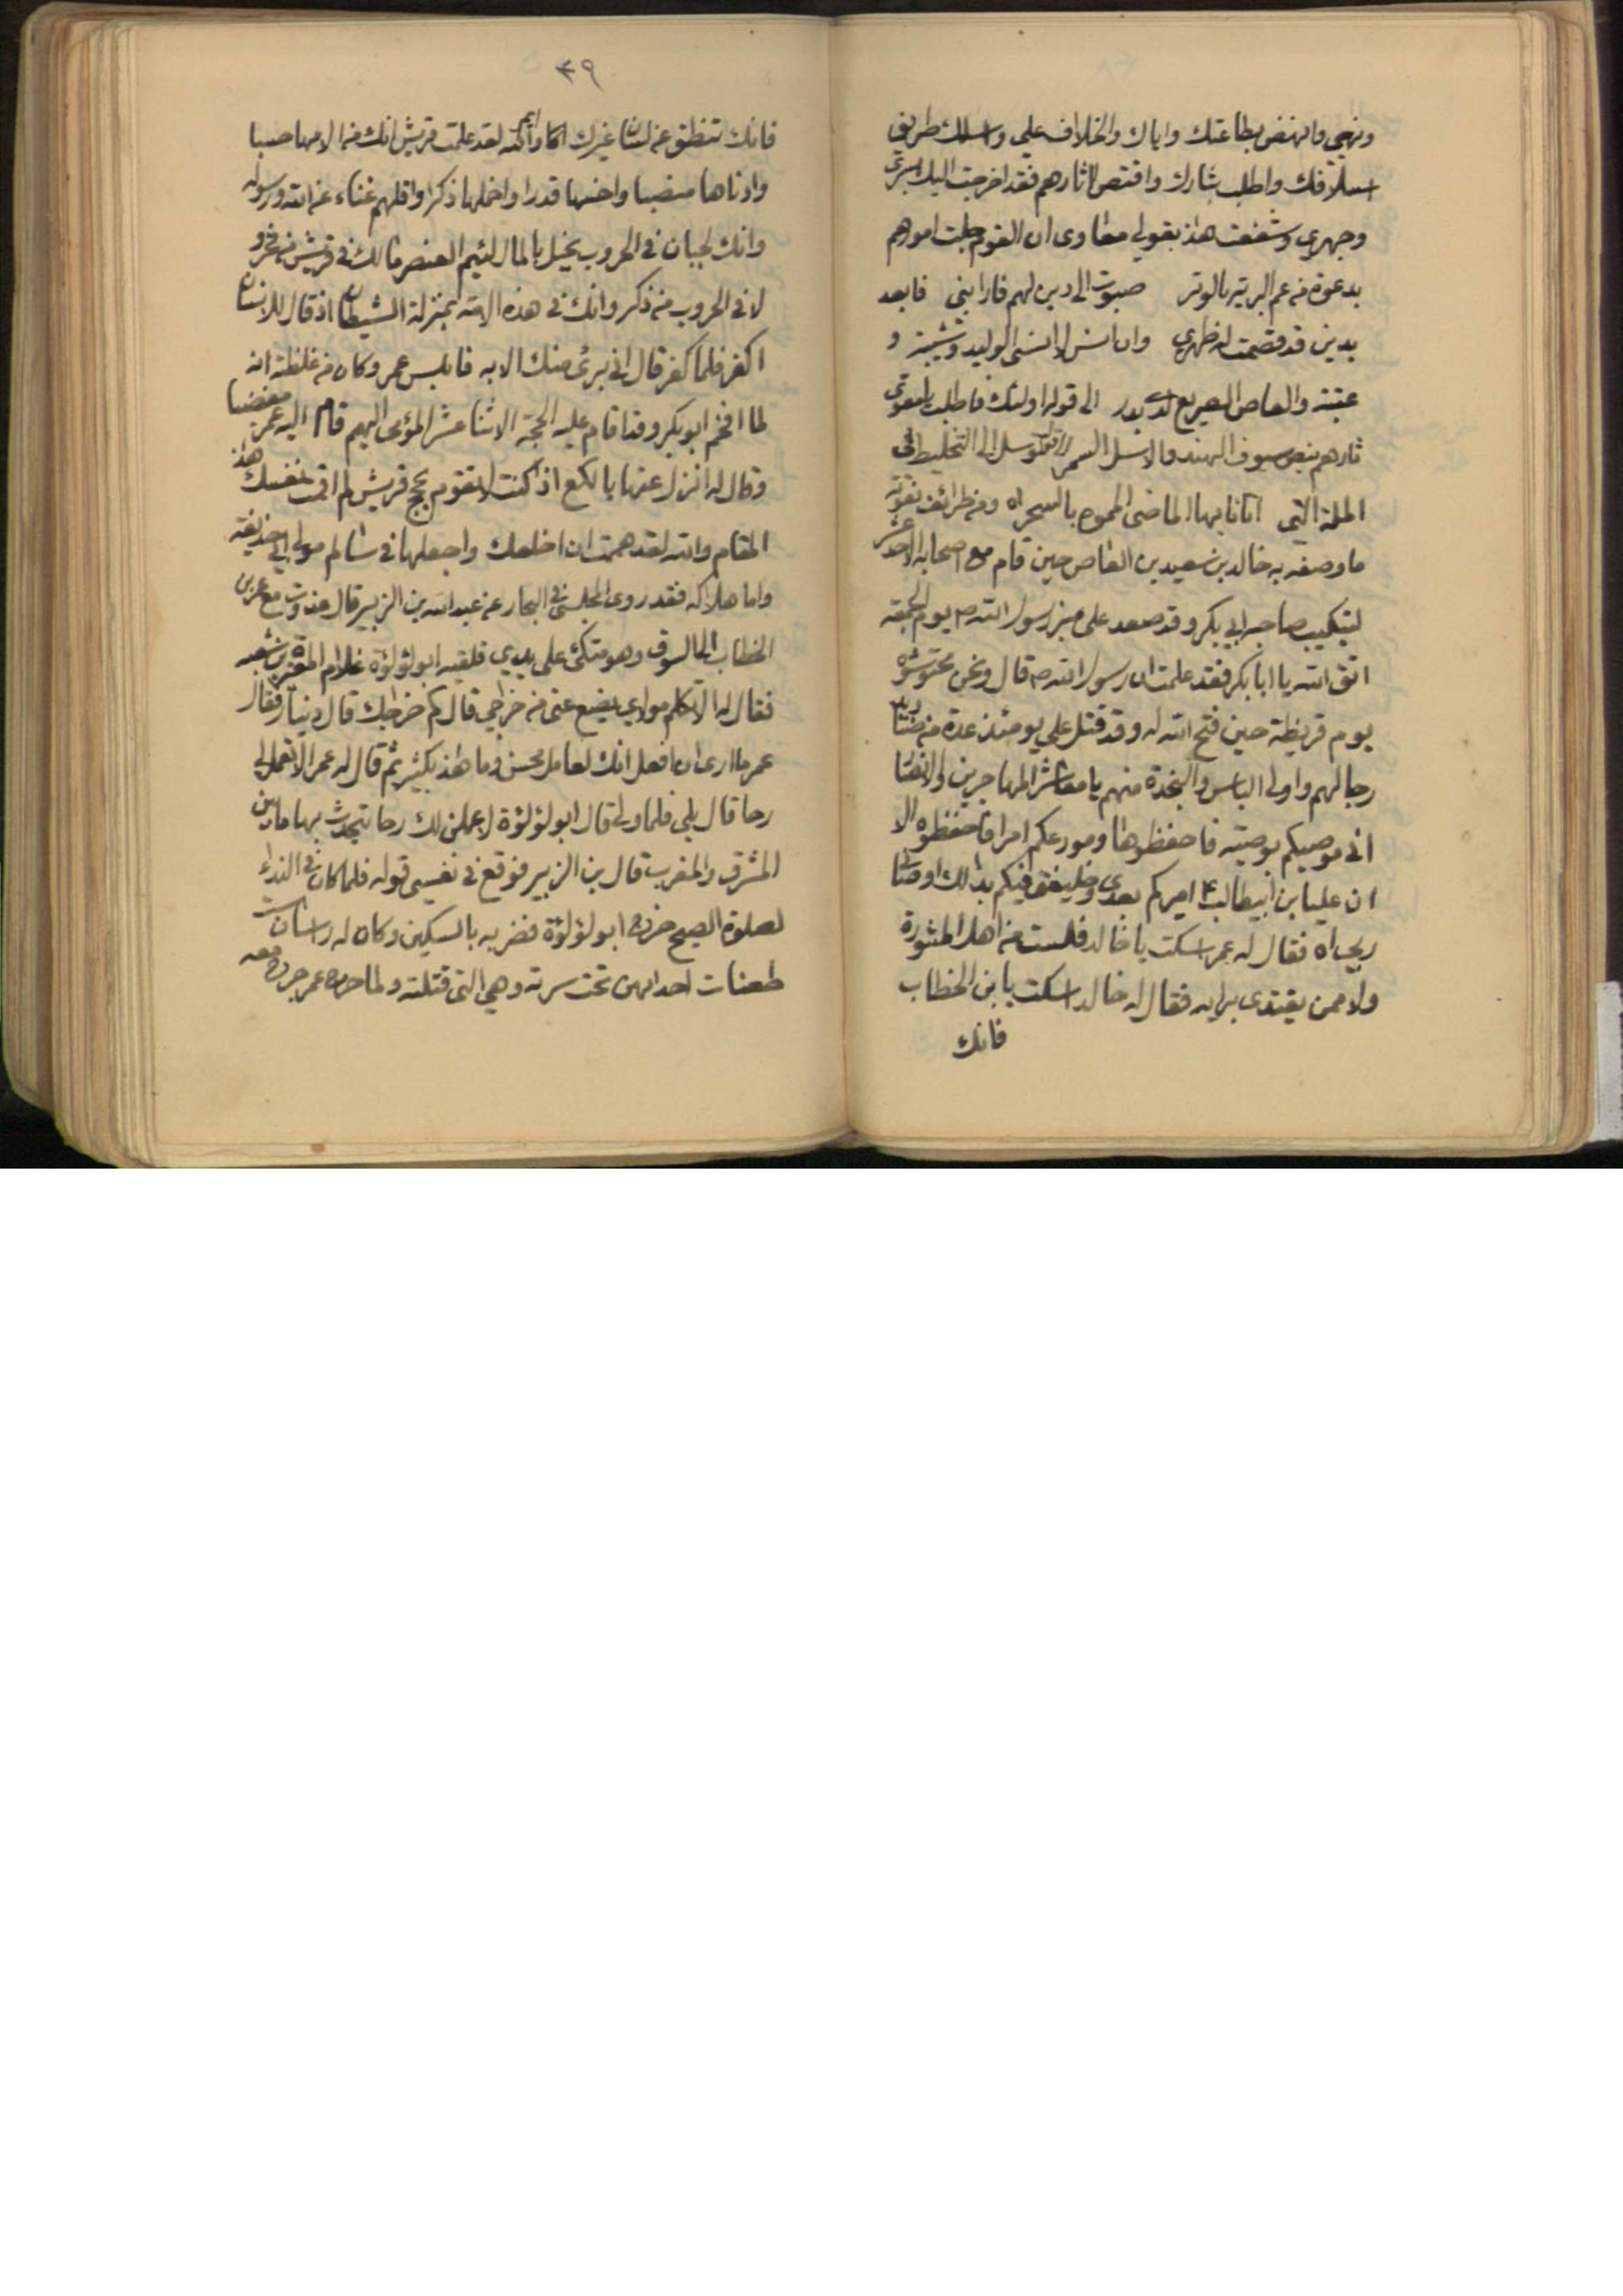 ونهيي وانهض بطاعتك واياك والخلاف علي واسلك طريق
اسلافك واطلب بثارك واقتص اثارهم فقد اخرجت اليك بسري
وجهري وشفعت هذا بقولي معاوى ان القوم جلت امورهم
بدعوة من عم البرية بالوتر صبوت الى دين لهم فارابني فابعد
بدين قد قصمت له ظهري وان انس لا انسى الوليد وشيبة و
عتبة والعاص الصريع لدى بدر الى قوله اولئك فاطلب يا معوى
ثارهم بنصل سيوف الهند والاسل السمر وتوسل الى التخليط في
الملة التي اتانا بها الماضي المموه بالسحر اه ومن طرائف نعوته
ما وصفه به خالد بن سعيد بن العاص حين قام مع اصحابه الاحد عشر
لتبكيت صاحبه ابي بكر وقد صعد على منبر رسول الله ص يوم الجمعة
اتق الله يا ابا بكر فقد علمت ان رسول الله ص قال ونحن محتوشوه
يوم قريظة حين فتح الله له وقد قتل علي يومئذ عدة من صناديد
رجالهم واولى الباس والنجدة منهم يا معاشر المهاجرين والانصار
اني موصيكم بوصية فاحفظوها ومودعكم امرا فاحفظوه الا
ان عليا بن ابيطالب ع اميركم بعدى وخليفتي فيكم بذلك اوصاني
ربي اه فقال له عمر اسكت يا خالد فلست من اهل المشورة
ولا ممن يقتدى برايه فقال له خالد اسكت يا بن الخطاب
فانك
٣٩
فانك تنطق عن لسان غيرك وايم الله لقد علمت قريش انك من الامها حسبا
وادناها منصبا واخسها قدرا واخملها ذكرا واقلهم غناء عن الله ورسوله
وانك لجبان في الحروب بخيل بالمال لئيم العنصر مالك في قريش من فخر و
لا في الحروب من ذكر وانك في هذه الامة بمنزلة الشيطان اذ قال للانسان
اكفر فلما كفر قال اني برئ منك الايه فابلس عمر وكان من غلظته انه
لما افحم ابو بكر وقد اقام عليه الحجة الاثنا عشر المؤمى اليهم قام اليه عمر مغضبا
وقال له انزل عنها يا لكع اذا كنت لا تقوم بحجج قريش لم اقمت نفسك هذا
المقام والله لقد هممت ان اخلعك واجعلها في سالم مولى ابي حذيفة
واما هلاكه فقد روى المجلسي في البحار عن عبد الله بن الزبير قال غدوت مع عمر بن
الخطاب الى السوق وهو متكئ على يدي فلقيه ابو لؤلؤة غلام المغيرة بن شعبه
فقال له الا تكلم مولاي يضع عني من خراجي قال كم خراجك قال دينار فقال
عمر ما ارى ان افعل انك لعامل محسن وما هذا بكثير ثم قال له عمر الا تعمل لي
رحا قال بلى فلما ولى قال ابو لؤلؤة لاعملن لك رحا يتحدث بها ما بين
المشرق والمغرب قال بن الزبير فوقع في نفسي قوله فلما كان في النداء
لصلوة الصبح خرج ابو لؤلؤة فضربه بالسكين وكان له راسان ست
طعنات احداهن تحت سرته وهي التي قتلته ولما جرح عمر جرح معه